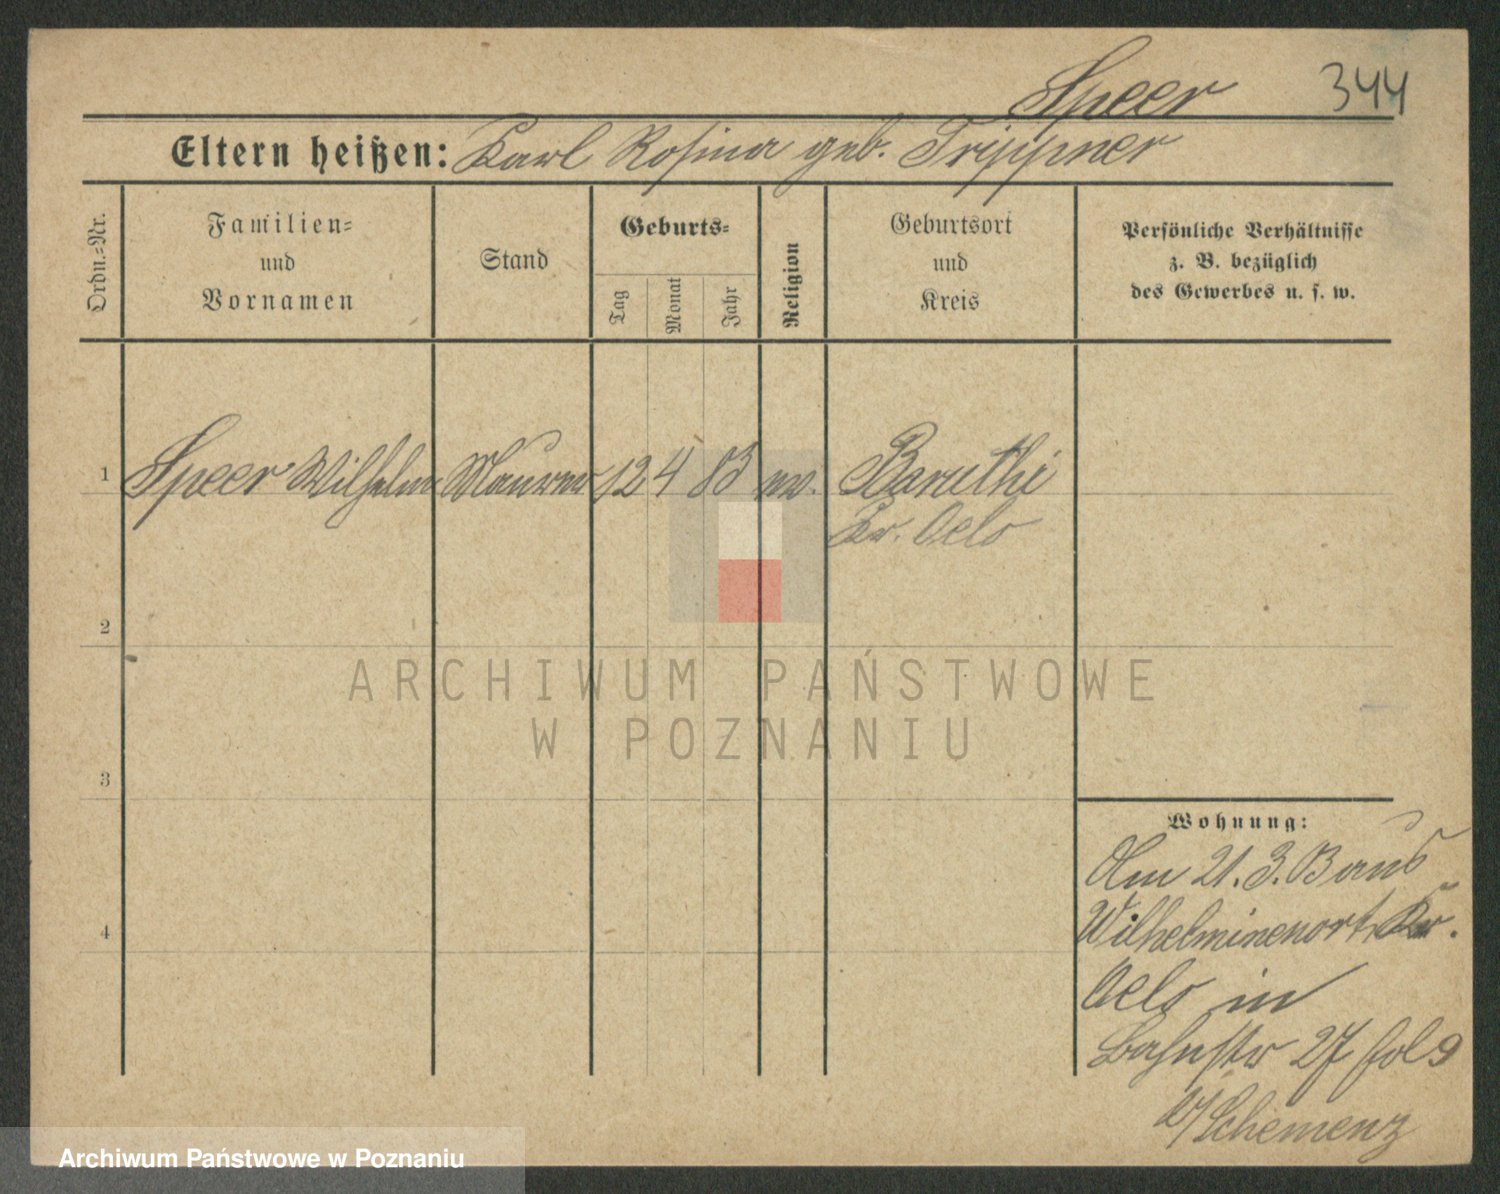 Speer 344
Eltern heißen: Karl Rosina geb. Trippner
Ordn.=Nr.
Familien=
und
Vornamen
Stand
Geburts=
Tag
Monat
Jahr
Religion
Geburtsort
und
Kreis
Persönliche Verhältnisse
z. B. bezüglich
des Gewerbes u. s. w.
1 Speer Wilhelm Maurer 12 4 83 ev. Baruthi
Kr. Oels
2
3
4
Wohnung:
Am 21. 3. 03 aus
Wilhelminenort, Kr.
Oels in
Bahnstr 27 fol 9
b/ Schemenz
ARCHIWUM PAŃSTWOWE
W POZNANIU
Archiwum Państwowe w Poznaniu